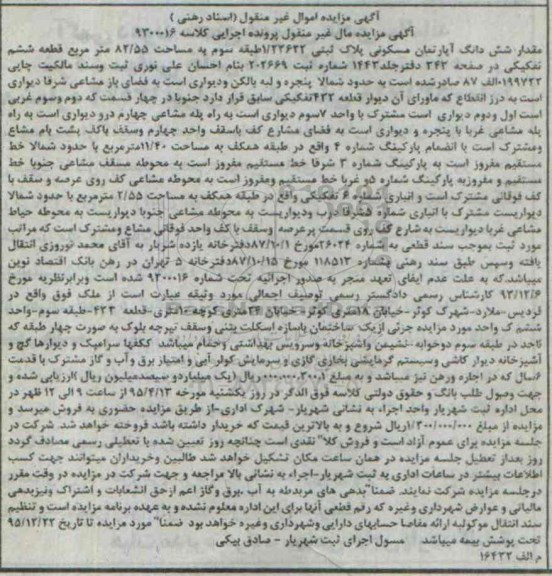 آگهی مزایده اموال غیر منقول (اسناد رهنی)
آگهی مزایده مال غیر منقول پرونده اجرایی کلاسه ۹۳۰۰۰۱۶
مقدار شش دانگ آپارتمان مسکونی پلاک ثبتی ۱/۲۳۶۲۲ طبقه سوم به مساحت ۸۲/۵۵ متر مربع قطعه ششم
تفکیکی در صفحه ۳۴۲ دفتر جلد ۱۴۴۳ شماره ثبت ۲۰۲۶۶۹ بنام احسان علی نوری ثبت وسند مالکیت چاپی
۰۱۹۹۷۲۲ الف ۸۷ صادر شده است به حدود شمالا پنجره و لبه بالکن ودیواری است به فضای باز مشاعی شرقا دیواری
است به درز انقطاع که ماورای آن دیوار قطعه ۴۳۲ تفکیکی سابق قرار دارد جنوبا در چهار قسمت که دوم وسوم غربی
است اول ودوم دیواری است مشترک با واحد ۷ سوم دیواری است به راه پله مشاعی چهارم درو دیواری است به راه
پله مشاعی غربا با پنجره و دیواری است به فضای مشارع کف باسقف واحد چهارم وسقف باکف پشت بام مشاع
ومشترک است با انضمام پارکینگ شماره ۴ واقع در طبقه همکف به مساحت ۱۱/۴۰ مترمربع با حدود شمالا خط
مستقیم مفروز است به پارکینگ شماره ۳ شرقا خط مستقیم مفروز است به محوطه مسقف مشاعی جنوبا خط
مستقیم و مفروز به پارکینگ شماره ۵ و غربا خط مستقیم ومفروز است به محوطه مشاعی کف روی عرصه و سقف با
کف فوقانی مشترک است و انباری شماره ۶ تفکیکی واقع در طبقه همکف به مساحت ۲/۵۵ مترمربع با حدود شمالا
دیواریست مشترک با انباری شماره ۵ شرقا درب ودیواریست به محوطه مشاعی جنوبا دیواریست به محوطه حیاط
مشاعی غربا دیواریست به شارع کف روی قسمت پرعرصه وسقف با کف واحد فوقانی مشاع ومشترک است که مراتب
مورد ثبت بموجب سند قطعی به شماره ۲۶۰۲۴ مورخ ۸۷/۱۰/۱ دفترخانه یازده شهریار به آقای محمد نوروزی انتقال
یافته وسپس طبق سند رهنی بشماره ۱۱۸۵۱۳ مورخ ۸۷/۱۰/۱۵ دفترخانه ۵ تهران در رهن بانک اقتصاد نوین
میباشد که به علت عدم ایفای تعهد منجر به صدور اجرائیه تحت شماره ۹۳۰۰۰۱۶ شده است وبرابر نظریه مورخ
۹۳/۱۲/۶ کارشناس رسمی دادگستر رسمی توصیف اجمالی مورد وثیقه عبارت است از ملک فوق واقع در
فردیس-ملارد-شهرک کوثر-خیابان ۱۸ متری کوثر-خیابان ۲۴ متری کوچه ۱۰ متری-قطعه ۴۳۳-طبقه سوم-واحد
ششم ک واحد مورد مزایده جزئی از یک ساختمان باسازه اسکلت بتنی وسقف تیرچه بلوک به صورت چهار طبقه که
تاحد در طبقه سوم دوخوابه-نشیمن واشپزخانه وسرویس بهداشتی وحمام میباشد کفها سرامیک و دیوارها گچ و
آشپزخانه دیوار کاشی وسیستم گرمایشی بخاری گازی و سرمایش کولر آبی و امتیاز برق و آب و گاز مشترک با قدمت
۶ سال که در اجاره ورهن نیز میباشد و به مبلغ ۱،۳۰۰،۰۰۰،۰۰۰ ریال (یک میلیارد و سیصد میلیون ریال) ارزیابی شده و
جهت وصول طلب بانگ و حقوق دولتی کلاسه فوق الذکر در روز یکشنبه مورخه ۹۵/۴/۱۳ از ساعت ۹ الی ۱۲ ظهر در
محل اداره ثبت شهریار واحد اجراء به نشانی شهریار- شهرک اداری- از طریق مزایده حضوری به فروش میرسد و
مزایده از مبلغ ۱/۳۰۰/۰۰۰/۰۰۰ ریال شروع و به بالاترین قیمت که خریدار داشته باشد فروخته خواهد شد. شرکت در
جلسه مزایده برای عموم آزاد است و فروش کلا" نقدی است چنانچه روز تعیین شده با تعطیلی رسمی مصادف گردد
روز بعداز تعطیل جلسه مزایده در همان ساعت مکان تشکیل خواهد شد طالبین وخریداران میتوانند جهت کسب
اطلاعات بیشتر در ساعات اداری به ثبت شهریار-اجراء به نشانی بالا مراجعه و جهت شرکت در مزایده در وقت مقرر
درجلسه مزایده شرکت نمایند. ضمنا" بدهی های مربدطه به آب ،برق وگاز اعم ازحق انشعابات و اشتراک ونیزبدهی
مالیاتی و عوارض شهرداری وغیره که رقم قطعی آنها برای این اداره معلوم نشده و به عهده برنامه مزایده است و تنظیم
سند انتقال موکولبه ارائه مفاصا حسابهای دارایی وشهرداری وغیره خواهد بود ضمنا" مورد مزایده تا تاریخ ۹۵/۱۲/۲۲
تحت پوشش بیمه میباشد مسول اجرای ثبت شهریار - صادق بیکی
م الف ۱۶۴۳۲